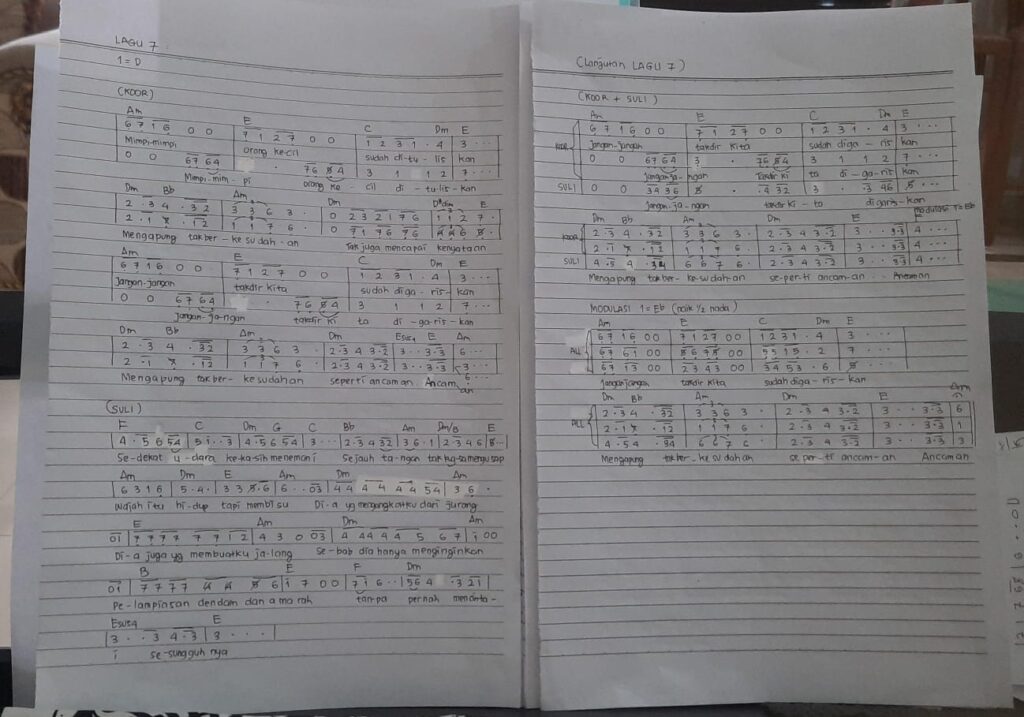 LAGU 7
1 = D
(KOOR)
Am E C Dm E
6 7 1 6 0 0 7 1 2 7 0 0 1 2 3 1 . 4 3 . . .
Mimpi-mimpi orang ke-cil sudah di-tu-lis kan
0 0 6 7 6 4 3 . 7 6 5 4 3 1 1 2 7 . . .
Mimpi-mim-pi orang ke-cil di-tu-lis-kan
Dm Bb Am Dm E
2 . 3 4 . 3 2 3 3 6 3 . 0 2 3 2 1 7 6 1 1 2 7 .
2 . 1 . 1 2 1 1 7 6 . 0 7 1 7 6 7 6
Mengapung takber-ke sudah-an Tak juga mencapai kenyataan
Am E C Dm E
6 7 1 6 0 0 7 1 2 7 0 0 1 2 3 1 . 4 3 . . .
Jangan-jangan takdir kita sudah diga-ris-kan
0 0 6 7 6 4 3 . 7 6 5 4 3 1 1 2 7 . . .
Jangan-ja-ngan takdir ki ta di-ga-ris-kan
Dm Bb Am Dm Esus4 E Am
2 . 3 4 . 3 2 3 3 6 3 . 2 . 3 4 3 . 2 3 . . 3 . 3 6 . . .
2 . 1 . 1 2 1 1 7 6 . 2 . 3 4 3 . 2 3 . . 3 . 3
Mengapung takber-kesudahan seperti ancaman Ancam an
(SULI)
F C Dm G C Bb Am Dm/B E
4 . 5 6 5 4 5 1 . . 3 4 . 5 6 5 4 3 . . . 2 . 3 4 3 2 3 6 . 1 2 3 4 6
Se-dekat u-dara ke-ka-sih menemani Sejauh ta-ngan tak
Am Dm Am Dm Am
6 3 1 6 5 . 4 . 3 3 5 . 6 6 . . 0 3 4 4 4 4 4 4 5 4 3 6 .
Wajah itu hi-dup tapi membisu Di-a yg mengangkatku dari jurang
E Am Dm Am
0 1 7 7 7 7 7 7 1 2 4 3 0 0 3 4 4 4 4 4 5 6 7 1 0 0
Di-a juga yg membuatku ja-lang Se-bab dia hanya menginginkan
B E F Dm
0 1 7 7 7 7 4 4 5 6 1 7 0 0 7 1 6 . . 5 6 4 . 3 2 1
Pe-lampiasan dendam dan amarah tan-pa pernah mencinta-
Esus4 E
3 . . 3 4 . 3 3 . . .
i se-sungguh nya
(Lanjutan LAGU 7)
(KOOR + SULI)
Am E C Dm E
6 7 1 6 0 0 7 1 2 7 0 0 1 2 3 1 . 4 3 . . .
KOOR Jangan-jangan takdir kita sudah diga-ris kan
0 0 6 7 6 4 3 . 7 6 5 4 3 1 1 2 7 . . .
Jangan ja-ngan Takdir ki ta di-ga-ris kan
SULI 0 0 3 4 3 6 5 . . 4 3 2 3 . . 3 4 6 5 . . .
Jangan-ja-ngan takdir ki-ta digaris-kan
modulasi 1=Eb
Dm Bb Am Dm E E
KOOR 2 . 3 4 . 3 2 3 3 6 3 . 2 . 3 4 3 . 2 3 . . 3 3 4 . . .
2 . 1 . 1 2 1 1 7 6 . 2 . 3 4 3 . 2 3 . . 3 3 4 . . .
SULI 4 . 5 4 . 3 4 6 6 7 6 . 2 . 3 4 3 . 2 3 . . 3 3 4 . . .
Mengapung takber-ke-sudah-an se-per-ti ancam-an Ancaman
MODULASI 1 = Eb (naik 1/2 nada)
Am E C Dm E
6 7 1 6 0 0 7 1 2 7 0 0 1 2 3 1 . 4 3 . . . .
ALL 6 7 6 1 0 0 5 6 7 5 0 0 5 5 1 5 . 2 7 . . .
6 7 1 3 0 0 2 3 4 3 0 0 3 4 5 3 . 6 5 . . .
Jangan jangan takdir kita sudah diga-ris-kan
Dm Bb Am Dm E Am
2 . 3 4 . 3 2 3 3 6 3 . 2 . 3 4 3 . 2 3 . . 3 . 3 6
ALL 2 . 1 . 1 2 1 1 7 6 . 2 . 3 4 3 . 2 3 . . 3 . 3 1
4 . 5 4 . 5 4 6 6 7 6 . 2 . 3 4 3 . 2 3 . . 3 . 3 3
Mengapung takber-ke sudahan se per-ti ancam-an Ancaman